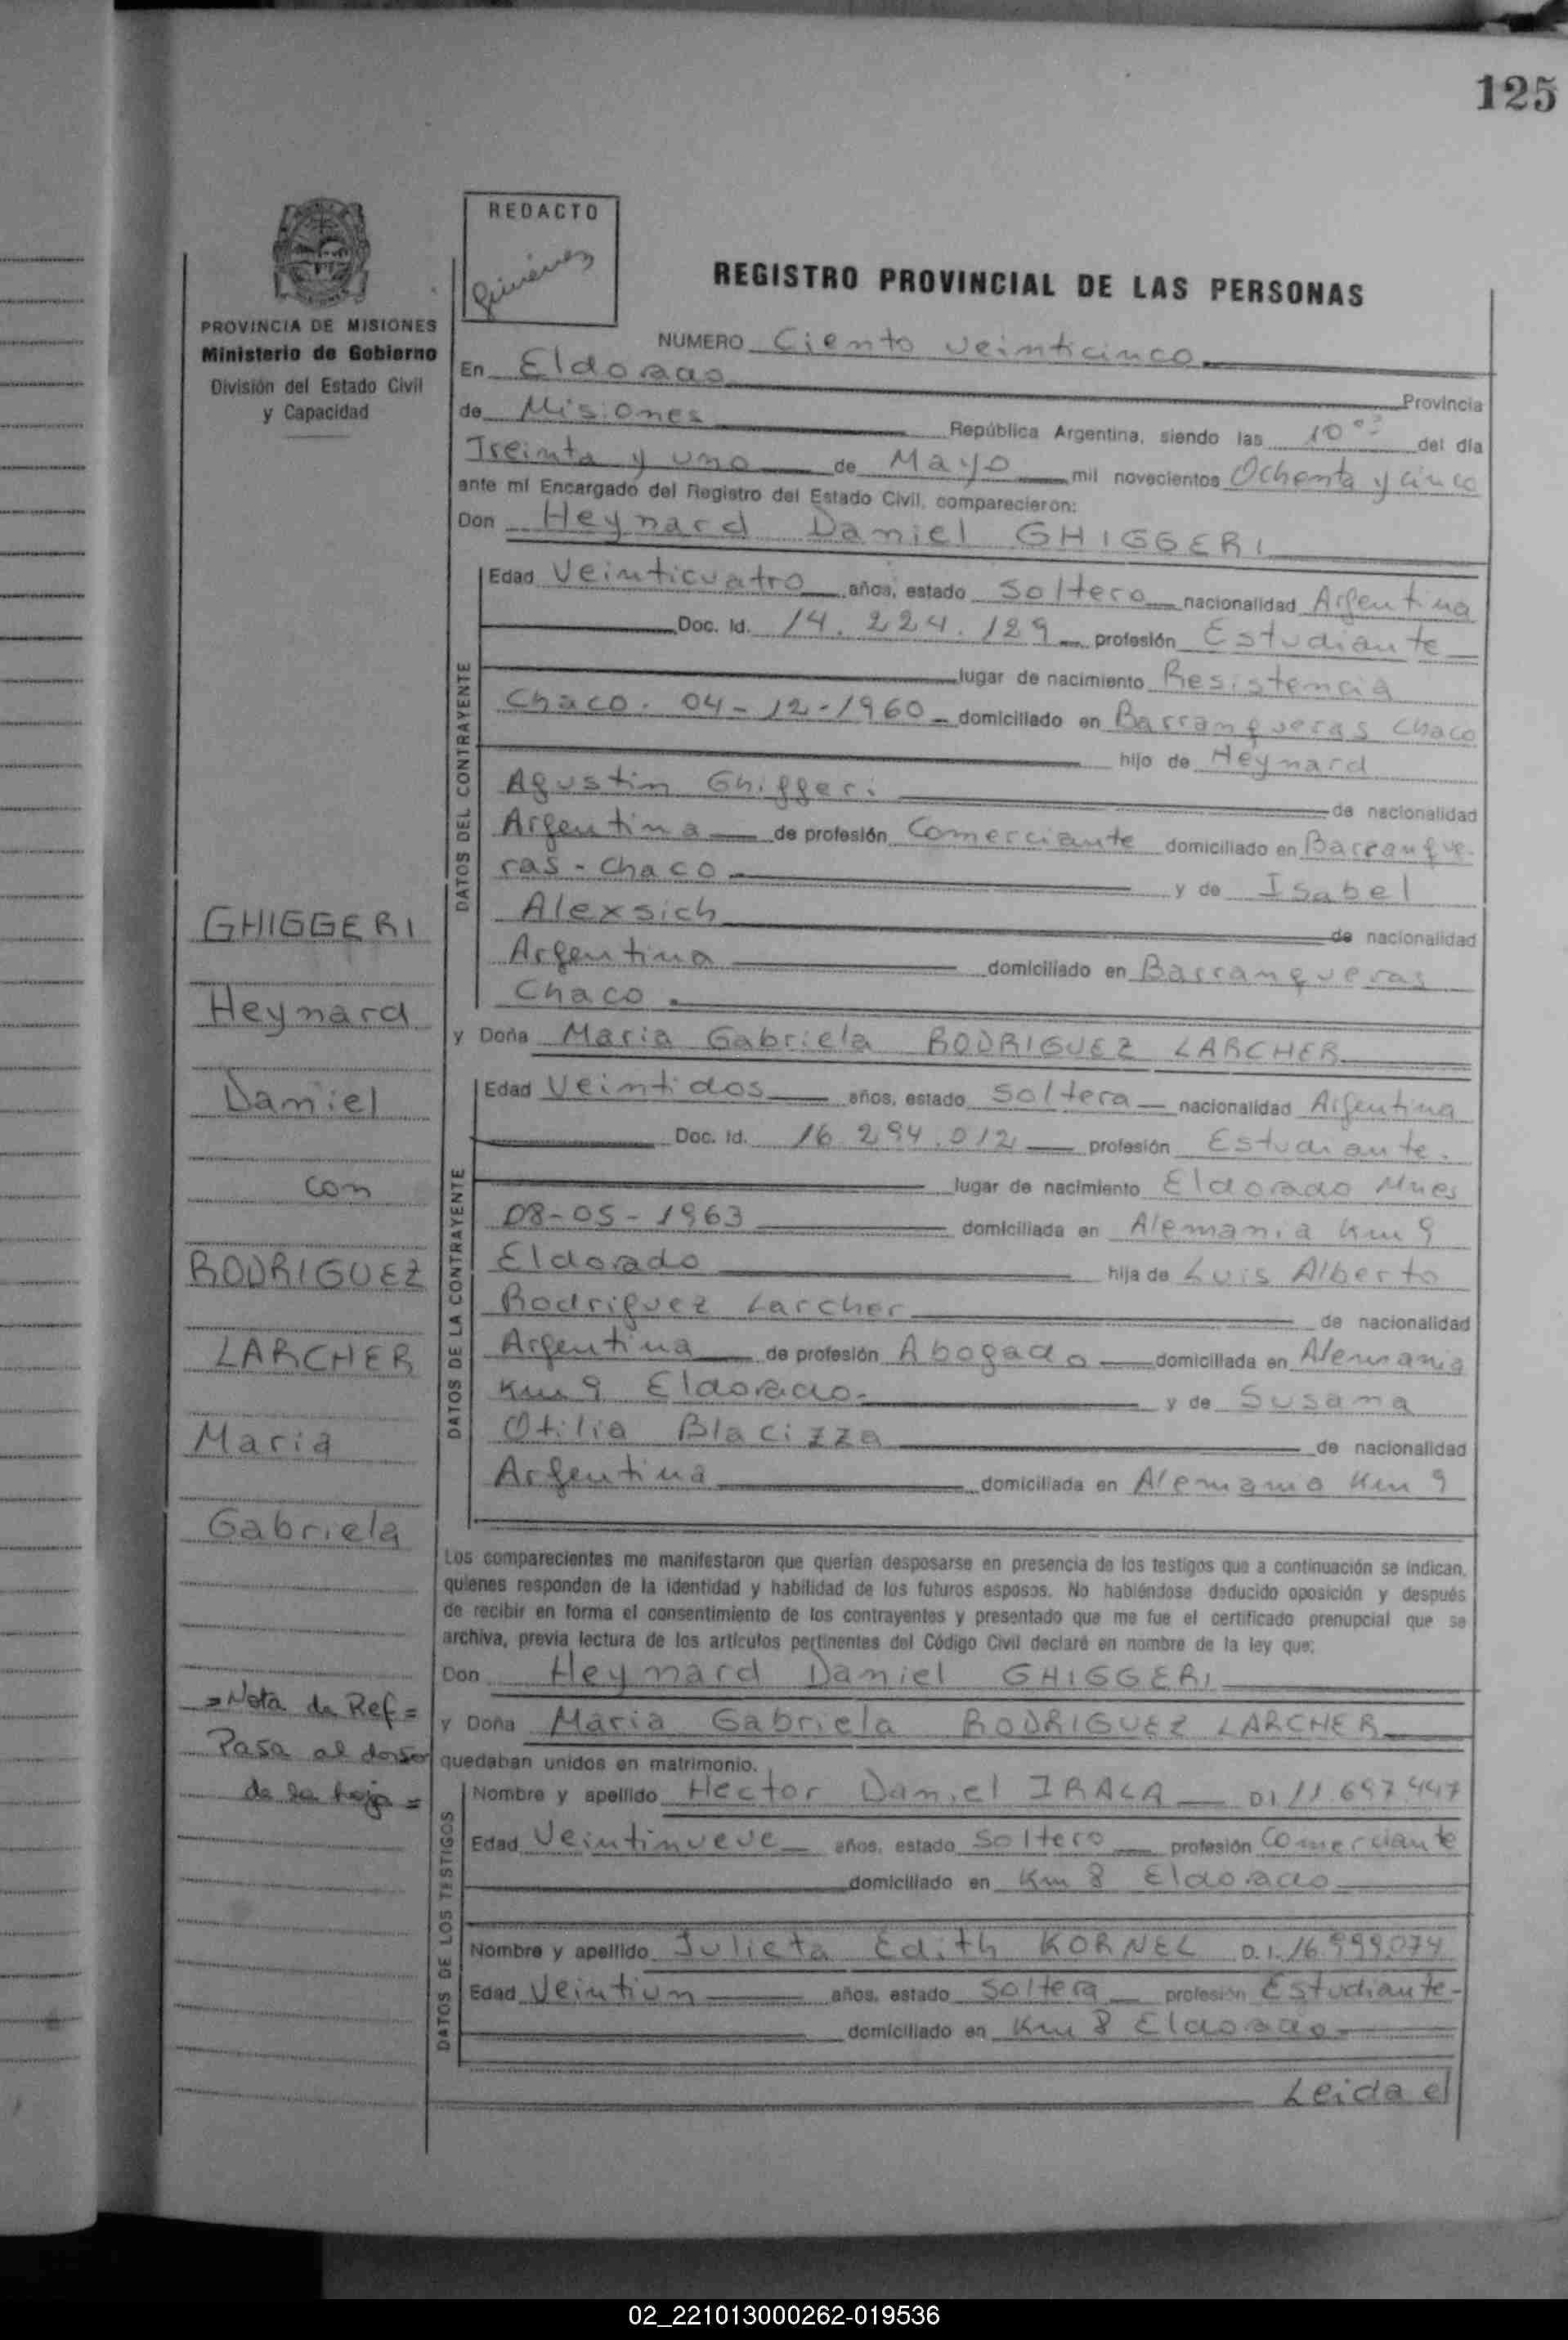 125
REDACTO
Giménez
PROVINCIA DE MISIONES
Ministerio de Gobierno
División del Estado Civil
y Capacidad
REGISTRO PROVINCIAL DE LAS PERSONAS
NUMERO Ciento veinticinco
En Eldorado Provincia
de Misiones República Argentina, siendo las 10 del día
Treinta y uno de Mayo mil novecientos Ochenta y cinco
ante mí Encargado del Registro del Estado Civil, comparecieron:
Don Heynard Daniel GHIGGERI
DATOS DEL CONTRAYENTE
Edad Veinticuatro años, estado Soltero nacionalidad Argentina
Doc. Id. 14.224.129 profesión Estudiante
lugar de nacimiento Resistencia
Chaco. 04-12-1960 domiciliado en Barranqueras Chaco
hijo de Heynard
Agustin Ghiggeri de nacionalidad
Argentina de profesión Comerciante domiciliado en Barranque-
ras - Chaco y de Isabel
Alexsich de nacionalidad
Argentina domiciliado en Barranqueras
Chaco.
y Doña Maria Gabriela RODRIGUEZ LARCHER
DATOS DE LA CONTRAYENTE
Edad Veintidos años, estado Soltera nacionalidad Argentina
Doc. Id. 16.294.012 profesión Estudiante.
lugar de nacimiento Eldorado Mnes
08-05-1963 domiciliada en Alemania Km 9
Eldorado hija de Luis Alberto
Rodriguez Larcher de nacionalidad
Argentina de profesión Abogado domiciliada en Alemania
Km 9 Eldorado. y de Susana
Otilia Blacizza de nacionalidad
Argentina domiciliada en Alemania Km 9
Los comparecientes me manifestaron que querían desposarse en presencia de los testigos que a continuación se indican,
quienes responden de la identidad y habilidad de los futuros esposos. No habiéndose deducido oposición y después
de recibir en forma el consentimiento de los contrayentes y presentado que me fue el certificado prenupcial que se
archiva, previa lectura de los artículos pertinentes del Código Civil declaré en nombre de la ley que:
Don Heynard Daniel GHIGGERI
y Doña Maria Gabriela RODRIGUEZ LARCHER
quedaban unidos en matrimonio.
DATOS DE LOS TESTIGOS
Nombre y apellido Hector Daniel IRALA DI 11.697.447
Edad Veintinueve años, estado Soltero profesión Comerciante
domiciliado en Km 8 Eldorado
Nombre y apellido Julieta Edith KORNEL D.I. 16.999.074
Edad Veintiun años, estado Soltera profesión Estudiante-
domiciliado en Km 8 Eldorado
Leida el
GHIGGERI
Heynard
Daniel
con
RODRIGUEZ
LARCHER
Maria
Gabriela
=Nota de Ref=
Pasa al dorso
de la hoja=
02_221013000262-019536